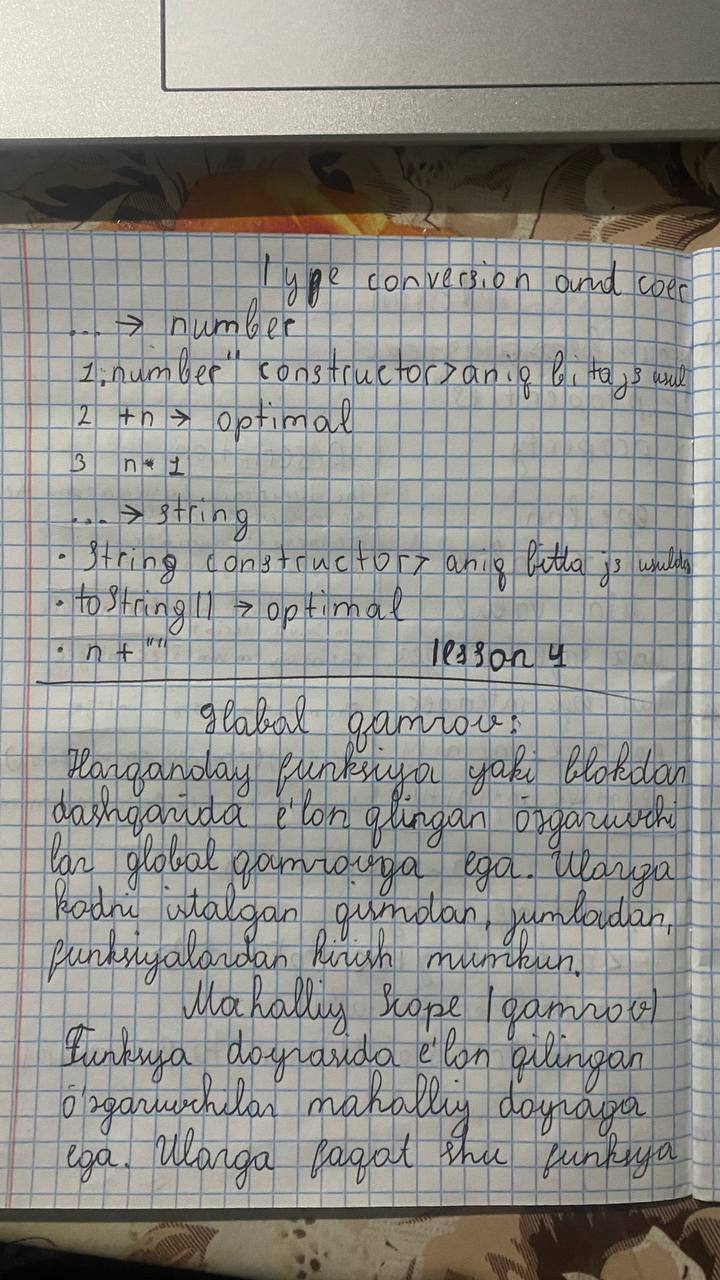 Type conversion and coer
... → number
1. "number" constructor > aniq bitajs usul
2 +n → optimal
3 n * 1
... → string
• String constructor > aniq bitta js usulda
• toString() → optimal
• n + ""
lesson 4
Glabal qamrov:
Harqanday funksiya yaki blokdan
dashqarida e'lon qlingan o'zgaruvchi
lar global qamrovga ega. Ularga
kodni istalgan qismdan, jumladan,
funksiyalardan kirish mumkun.
Mahalliy Scope (qamrov)
Funksya doyrasida e'lon qilingan
o'zgaruvchilar mahalliy doyraga
ega. Ularga faqat shu funksya